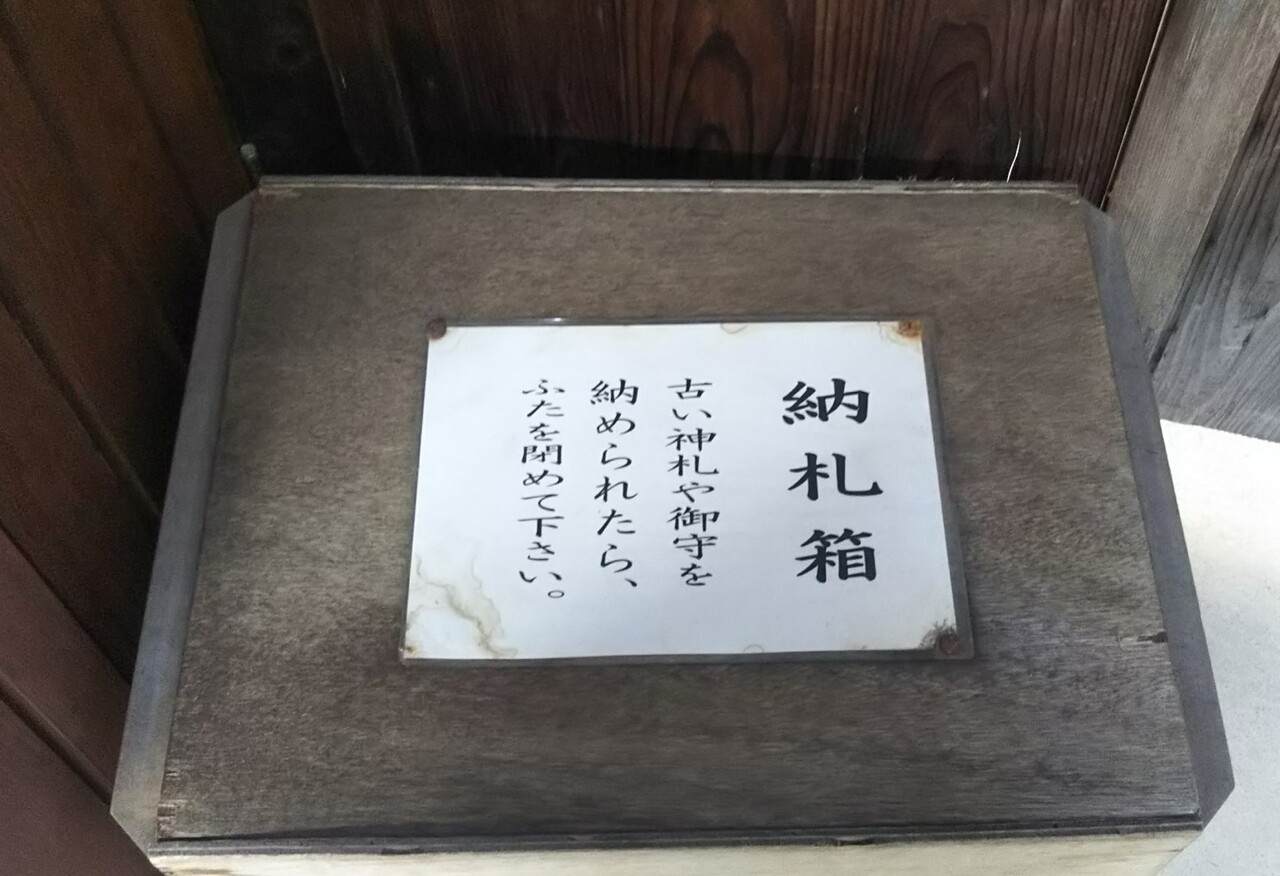 納札箱
古い神札や御守を
納められたら、
ふたを閉めて下さい。